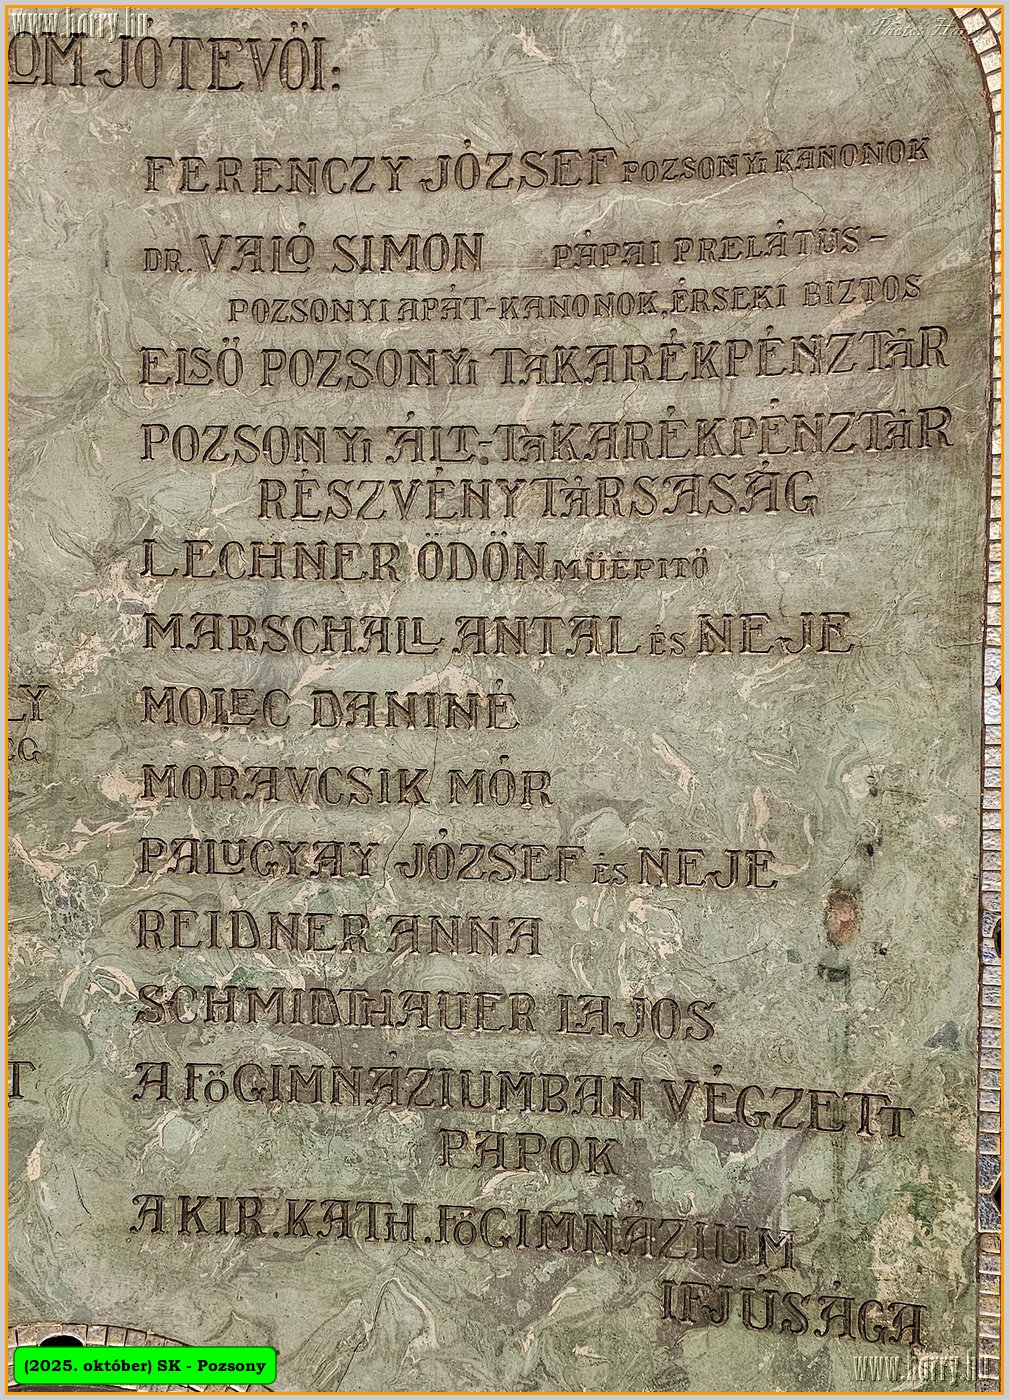 www.harry.hu
Photo: Har
OM JÓTEVŐI:
FERENCZY JÓZSEF POZSONYI KANONOK
DR. VALÓ SIMON PÁPAI PRELÁTUS-
POZSONYI APÁT-KANONOK, ÉRSEKI BIZTOS
ELSÖ POZSONYI TAKARÉKPÉNZTÁR
POZSONYI ÁLT.-TAKARÉKPÉNZTÁR
RÉSZVÉNYTÁRSASÁG
LECHNER ÖDÖN MŰÉPITŐ
MARSCHALL ANTAL ÉS NEJE
LY
MOLEC DANINÉ
EG
MORAVCSIK MÓR
PALUGYAY JÓZSEF ÉS NEJE
REIDNER ANNA
SCHMIDTHAUER LAJOS
T
A FÖGIMNÁZIUMBAN VÉGZETT
PAPOK
A KIR. KATH. FÖGIMNÁZIUM
IFJÚSÁGA
(2025. október) SK - Pozsony
www.harry.hu